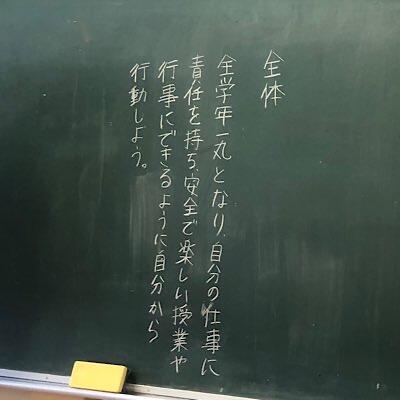 全体
全学年一丸となり、自分の仕事に
責任を持ち、安全で楽しい授業や
行事にできるように自分から
行動しよう。